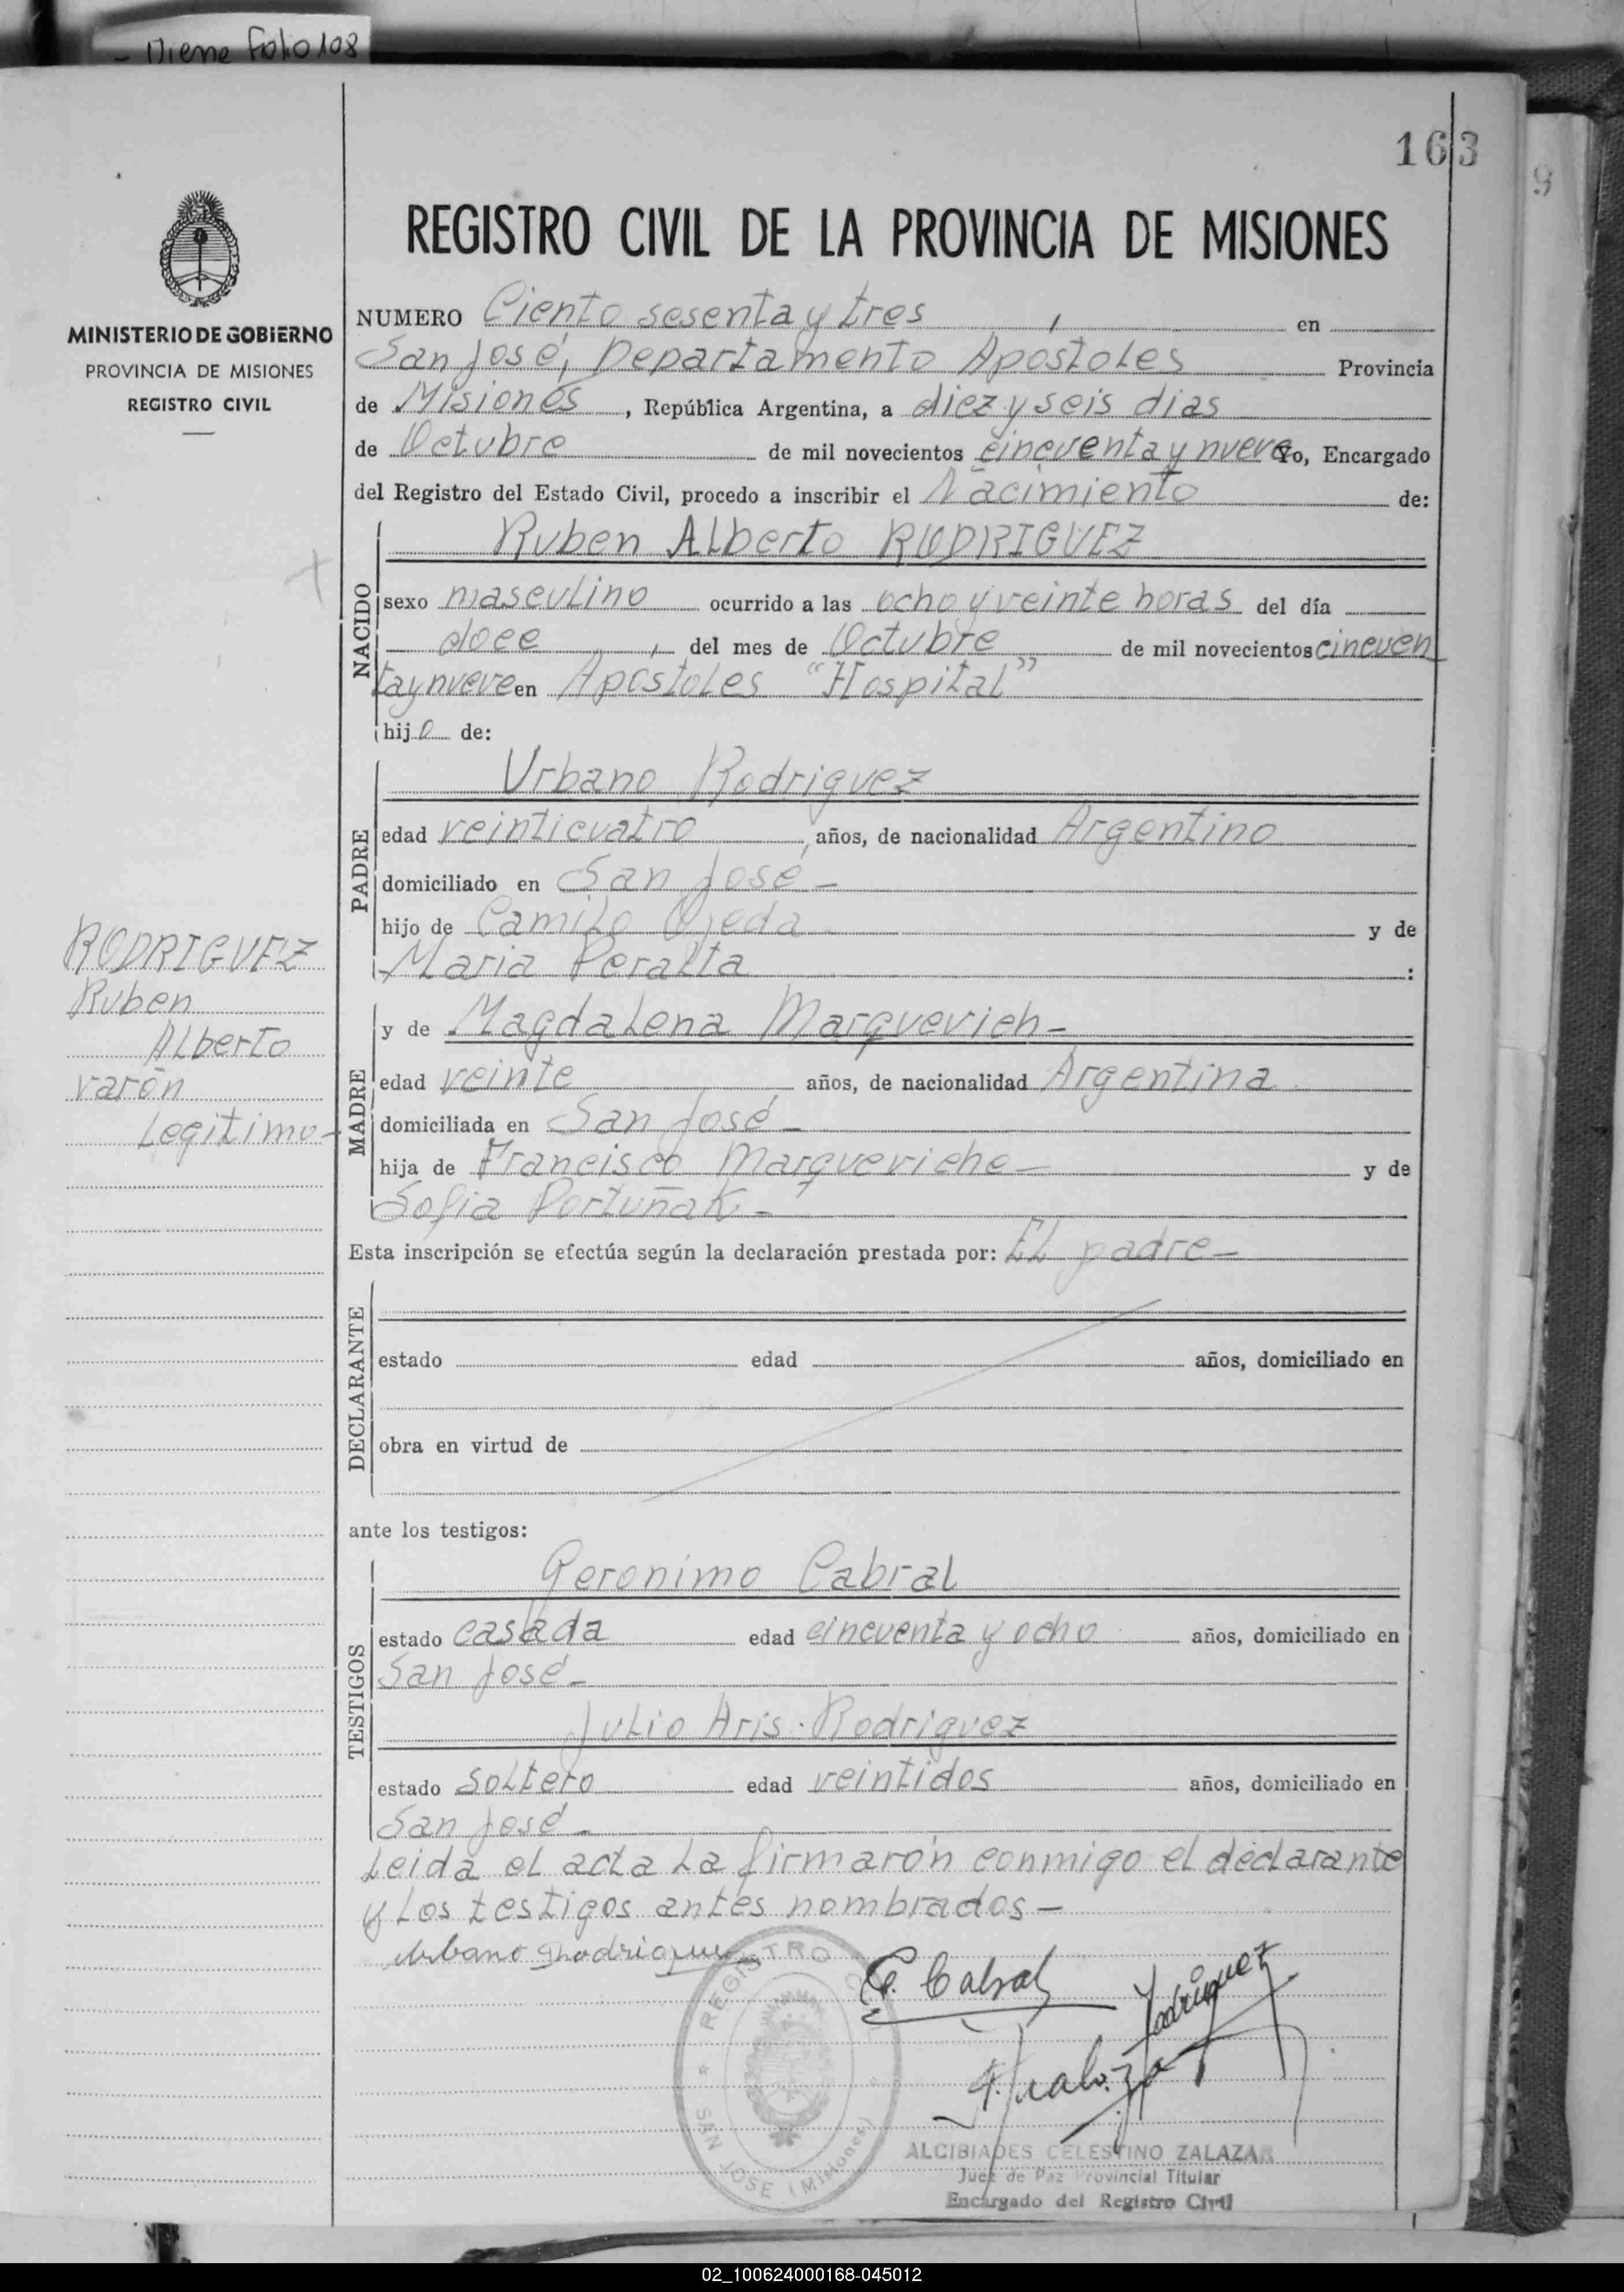 - Viene Folio 108
163
9
MINISTERIO DE GOBIERNO
PROVINCIA DE MISIONES
REGISTRO CIVIL
REGISTRO CIVIL DE LA PROVINCIA DE MISIONES
NUMERO Ciento sesenta y tres, en
San José, Departamento Apostoles Provincia
de Misiones, República Argentina, a diez y seis dias
de Octubre de mil novecientos cincuenta y nueve Yo, Encargado
del Registro del Estado Civil, procedo a inscribir el Nacimiento de:
NACIDO
Ruben Alberto RODRIGUEZ
sexo masculino ocurrido a las ocho y veinte horas del día
doce, del mes de Octubre de mil novecientos cincuen
ta y nueve en Apostoles "Hospital"
hijo de:
PADRE
Urbano Rodriguez
edad veinticuatro años, de nacionalidad Argentino
domiciliado en San José -
hijo de Camilo Ojeda y de
Maria Peralta :
RODRIGUEZ
Ruben
Alberto
varón
Legitimo -
MADRE
y de Magdalena Marquevich -
edad veinte años, de nacionalidad Argentina
domiciliada en San José -
hija de Francisco Marqueviche - y de
Sofia Portuñak -
Esta inscripción se efectúa según la declaración prestada por: El padre -
DECLARANTE
estado edad años, domiciliado en
obra en virtud de
ante los testigos:
TESTIGOS
Geronimo Cabral
estado casada edad cincuenta y ocho años, domiciliado en
San José -
Julio Aris. Rodriguez
estado soltero edad veintidos años, domiciliado en
San José -
Leida el acta la firmarón conmigo el declarante
y los testigos antes nombrados -
Urbano Rodriguez
G. Cabral
Rodriguez
REGISTRO
SAN JOSE (Misiones)
ALCIBIADES CELESTINO ZALAZAR
Juez de Paz Provincial Titular
Encargado del Registro Civil
02_100624000168-045012